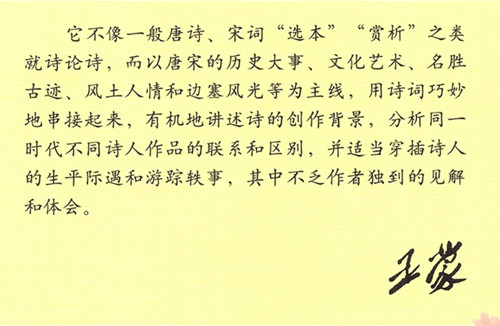 它不像一般唐诗、宋词“选本”“赏析”之类
就诗论诗，而以唐宋的历史大事、文化艺术、名胜
古迹、风土人情和边塞风光等为主线，用诗词巧妙
地串接起来，有机地讲述诗的创作背景，分析同一
时代不同诗人作品的联系和区别，并适当穿插诗人
的生平际遇和游踪轶事，其中不乏作者独到的见解
和体会。
王蒙